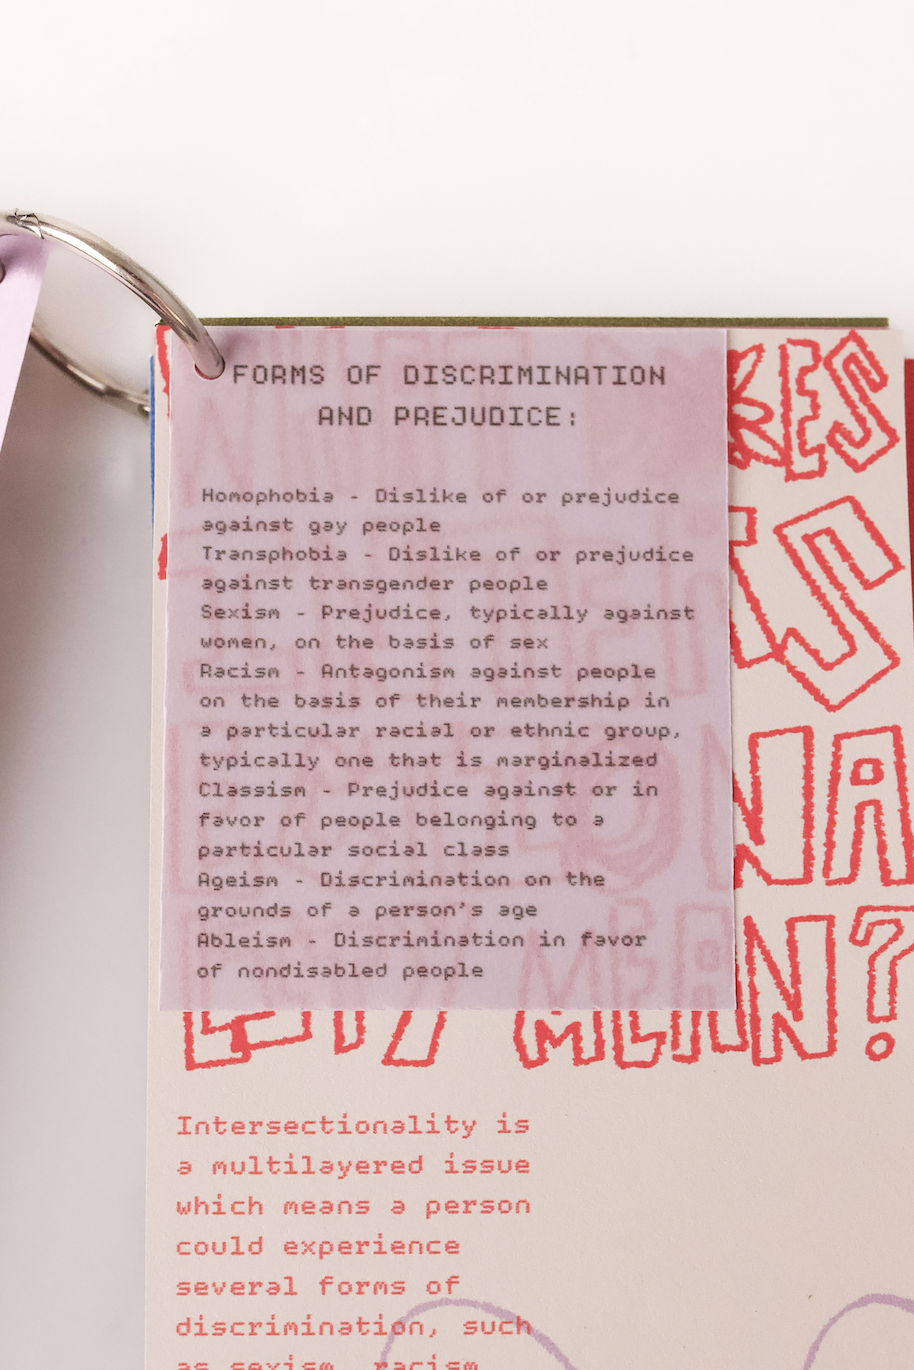 FORMS OF DISCRIMINATION
AND PREJUDICE:
Homophobia - Dislike of or prejudice
against gay people
Transphobia - Dislike of or prejudice
against transgender people
Sexism - Prejudice, typically against
women, on the basis of sex
Racism - Antagonism against people
on the basis of their membership in
a particular racial or ethnic group,
typically one that is marginalized
Classism - Prejudice against or in
favor of people belonging to a
particular social class
Ageism - Discrimination on the
grounds of a person's age
Ableism - Discrimination in favor
of nondisabled people
MEAN?
Intersectionality is
a multilayered issue
which means a person
could experience
several forms of
discrimination, such
as sexism, racism